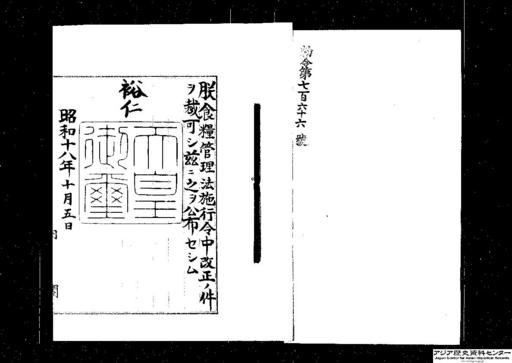 勅令第七百六十六號
朕食糧管理法施行令中改正ノ件
ヲ裁可シ茲ニ之ヲ公布セシム
裕仁
天皇
御璽
昭和十八年十月五日
アジア歴史資料センター
Japan Center for Asian Historical Records